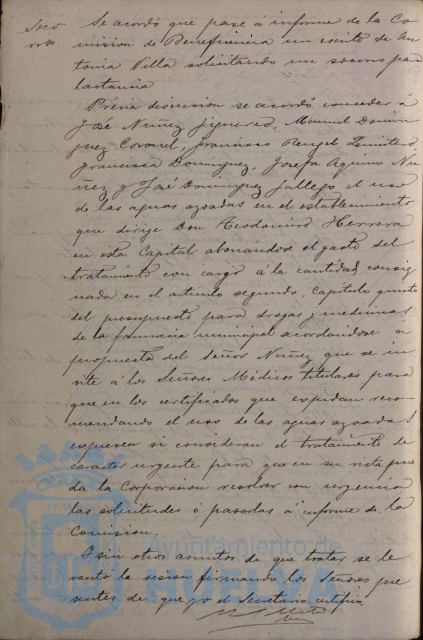 Soco Se acordó que pase á informe de la Co
rros mision de Beneficencia un escrito de An
tonia Villa solicitando un socorro para
lactancia
Prévia discusion se acordó conceder á
José Nuñez Figuereo, Manuel Domin
guez Coronel, Francisco Rengel
Francisca Dominguez, Josefa Aquino Nu
ñez y José Dominguez Gallego el uso
de las aguas azoadas en el establecimiento
que dirije Don Teodomiro Herrera
en esta Capital abonandose el gasto del
tratamiento con cargo á la cantidad consig
nada en el articulo segundo, Capitulo quinto
del presupuesto para drogas y medicinas
de la farmacia municipal acordandose a
propuesta del Señor Nuñez que se in
vite á los Señores Médicos titulares para
que en los certificados que expidan reco
mendando el uso de las aguas azoadas
espresen si consideran el tratamiento de
caracter urgente para que en su vista pue
da la Corporacion resolver con urgencia
las solicitudes ó pasarlas á informe de la
Comision.
I sin otros asuntos de que tratar se le
vantó la sesion firmando los Señores pre
sentes de que yo el Secretario certifico
Ayuntamiento de
HUELVA